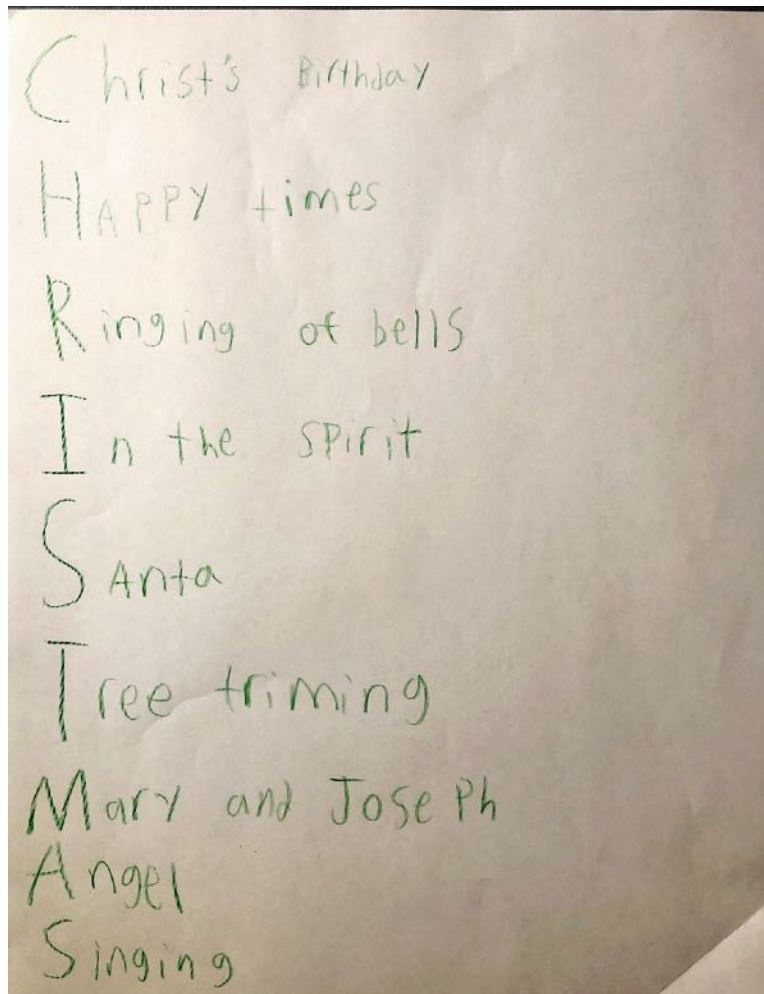 Christ's Birthday
HAPPY times
Ringing of bells
In the spirit
SAnta
Tree triming
Mary and Joseph
Angel
Singing